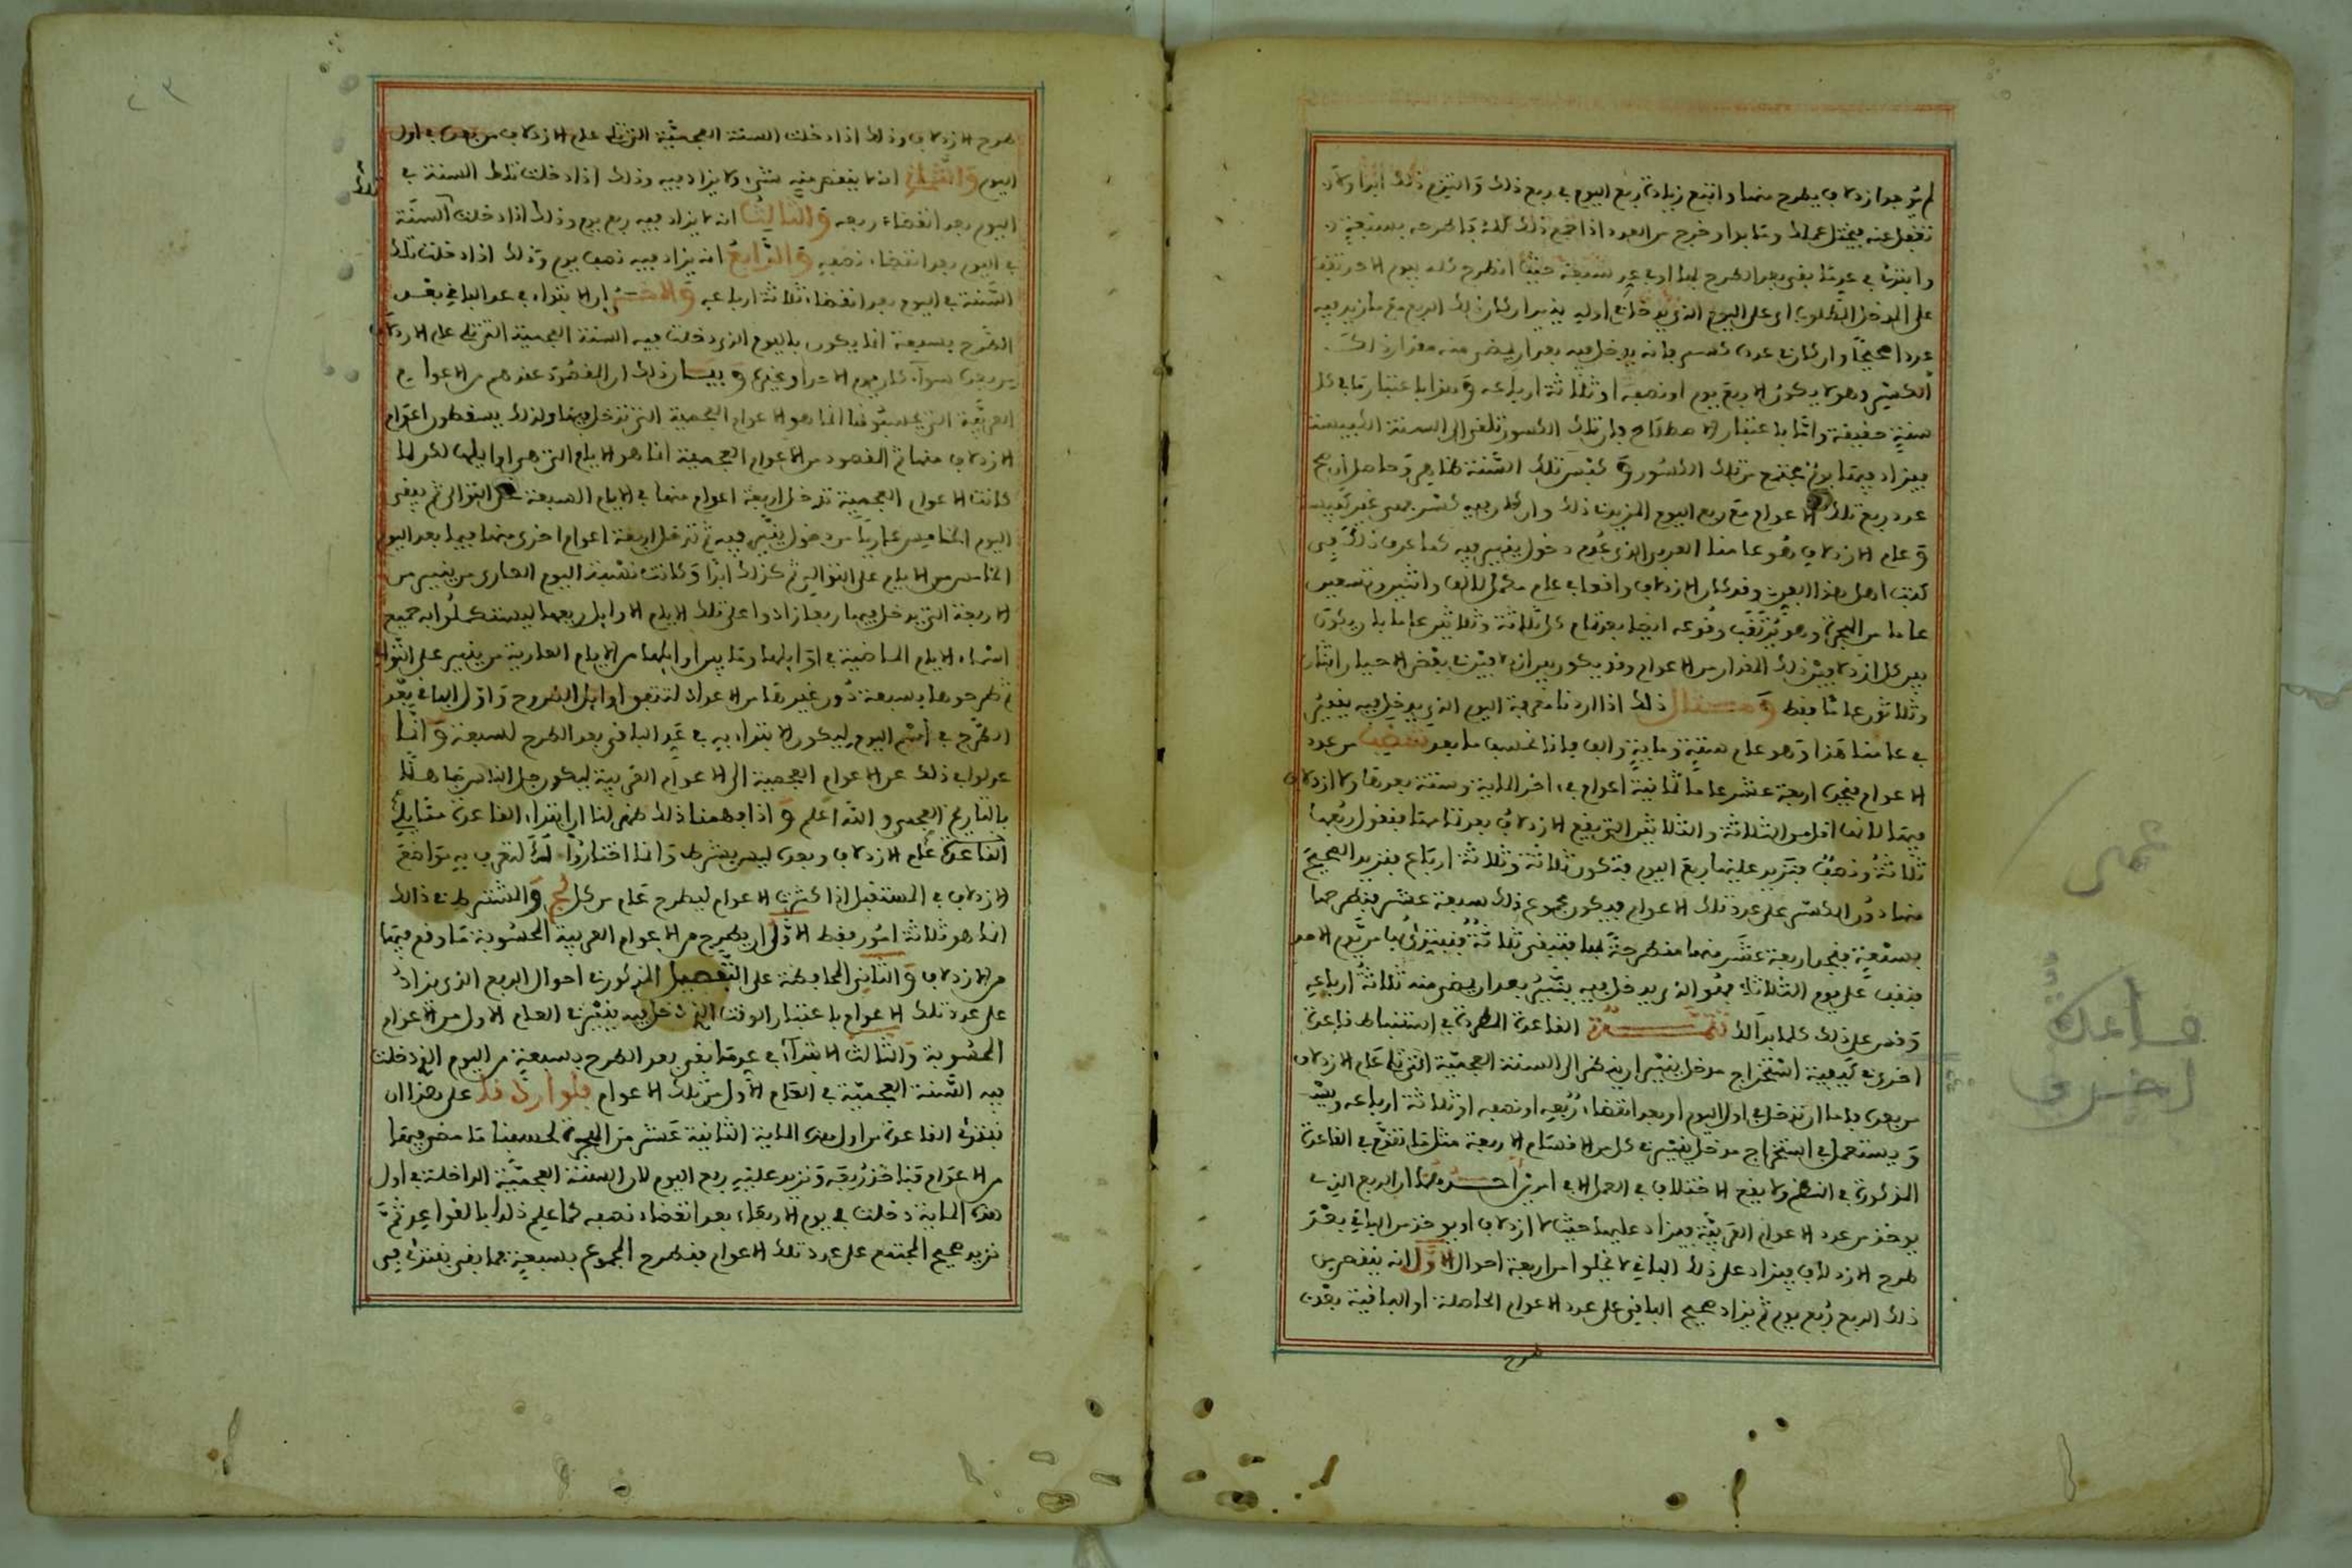 لم توجد ازدلاف يطرح منها واتبع زيادة ربع اليوم في ربع ذلك والتزم ذلك ابدا ولا
تغفل عنه فيختل عملك وما به او خرج من العدد اذا جمع ذلك كله فاطرحه بسبعة
وابتدئ في عد ما بقي بعد الطرح
على المدخل المطلوب اي على اليوم الذي يدخل في اوله ينير ان كان ذلك الربع مع ما زيد فيه
عددا صحيحا وان كان في عدده كسر فانه يدخل فيه بعد ان يمضي منه مقدار ذلك
الكسر وهو لا يكون الا ربع يوم او نصفه او ثلاثة ارباعه وهذا باعتبار ما في كل
سنة حقيقة واما باعتبار الاصطلاح فان تلك الكسور تلغى الى السنة الكبيسة
فيزاد فيها يوم يجتمع من تلك الكسور وكبس تلك السنة ظاهر وحاصل
عدد ربع تلك الاعوام مع ربع اليوم المزيد في ذلك وان كان فيه كسر فهي غير كبيسة
وعام الازدلاف هو عامنا العربي الذي عدم دخول ينير فيه كما عرف ذلك في
كتب اهل هذا الفن وقد كان الازدلاف واقعا في عام مكمل لالف واثنين وتسعين
عاما من الهجرة وهو يترقب وقوعه ايضا بعد تمام كل ثلاثة وثلاثين عاما بان يكون
بين كل ازدلافين ذلك المقدار من الاعوام وقد يكون بين ازدلافين في بعض الاحيان اثنان
وثلاثون عاما فقط ومثال ذلك اذا اردنا معرفة اليوم الذي يدخل فيه ينير
في عامنا هذا وهو عام ستة ومائة والف فانا نحسب ما بعد من عدد
الاعوام فنجده اربعة عشر عاما ثمانية اعوام في اخر المائة وستة بعدها ولا ازدلاف
فيها لانها اقل من الثلاثة والثلاثين التي يقع الازدلاف بعد تمامها فنقول ربعها
ثلاثة ونصف فنزيد عليها ربع اليوم فتكون ثلاثة وثلاثة ارباع فنزيد الصحيح
منها دون الكسر على عدد تلك الاعوام فيكون مجموع ذلك سبعة عشر فنطرحها
بسبعة فنجد اربعة عشر منها منطرحة بها فتبقى ثلاثة فنبتدئ بها من يوم الاحد
فنقف على يوم الثلاثاء فهو الذي يدخل فيه ينير بعد ان يمضي منه ثلاثة ارباعه
وقس على ذلك كلما بدا لك تتمة القاعدة المطردة في استنباط قاعدة
اخرى في كيفية استخراج مدخل ينير ان ينظر الى السنة العجمية التي تلي عام الازدلاف
من بعده فاما ان تدخل في اول اليوم او بعد انقضاء ربعه او نصفه او ثلاثة ارباعه
ويستعمل في استخراج مدخل ينير في كل من الاقسام الاربعة مثل ما تقدم في القاعدة
المذكورة في النظم ولا يقع الاختلاف في العمل الا في امرين احدهما ان الربع الذي
يوخذ من عدد الاعوام العربية فيزاد عليها حيث لا ازدلاف او يوخذ من الباقي بعد
طرح الازدلاف فيزاد على ذلك الباقي لا يخلو من اربعة احوال الاول انه ينقص من
ذلك الربع ربع يوم ثم يزاد صحيح الباقي على عدد الاعوام الحاصلة او الباقية بعد
طرح
قاعدة
اخرى
طرح الازدلاف وذلك اذا دخلت السنة العجمية التي تلي عام الازدلاف من بعده في اول
اليوم والثاني انه لا ينقص منه شيء ولا يزاد فيه وذلك اذا دخلت تلك السنة في
اليوم بعد انقضاء ربعه والثالث انه يزاد فيه ربع يوم وذلك اذا دخلت السنة
في اليوم بعد انقضاء نصفه والرابع انه يزاد فيه نصف يوم وذلك اذا دخلت تلك
السنة في اليوم بعد انقضاء ثلاثة ارباعه والاخر ان الابتداء في عد الباقي بعد
الطرح بسبعة انما يكون باليوم الذي دخلت فيه السنة العجمية التي تلي عام الازدلاف
من بعده سواء كان يوم الاحد او غيره وبيان ذلك ان المقصود عندهم من الاعوام
العربية التي يحسبونها انما هو الاعوام العجمية التي تدخل فيها ولذلك يسقطون اعوام
الازدلاف منها ثم المقصود من الاعوام العجمية انما هو الايام التي هي اوايلها لكن لما
كانت الاعوام العجمية تدخل اربعة اعوام منها في الايام السبعة على التوالي ثم يبقى
اليوم الخامس عاريا من دخول ينير فيه ثم تدخل اربعة اعوام اخرى منها فيما بعد اليوم
الخامس من الايام على التوالي ثم كذلك ابدا وكانت نسبة اليوم العاري من ينير من
الاربعة التي يدخل فيها ربعا زادوا على تلك الايام الاوايل ربعها ليستكملوا به جميع
اسماء الايام الماضية في اوايلها وما بين اوايلها من الايام العارية من ينير على التوالي
ثم طرحوها بسبعة دون غيرها من الاعداد لتتفق اوايل الطروح واول الباقي بعد
الطرح في اسم اليوم ليكون الابتداء به في عد الباقي بعد الطرح لسبعة وانما
عدلوا في ذلك عن الاعوام العجمية الى الاعوام العربية ليكون جل الناس جاهلا
بالتاريخ العجمي والله اعلم واذا فهمنا ذلك ظهر لنا ان ابتداء القاعدة مما يلي
القاعدة عام الازدلاف وبعده ليس بشرط وانما اختاروا ذلك لتعرف به مواضع
الازدلاف في المستقبل اذا كثرت الاعوام ليطرح عام من كل لج والمشترط في ذلك
انما هو ثلاثة امور فقط الاول ان يطرح من الاعوام العربية المحسوبة ما وقع فيها
من الازدلاف والثاني المحافظة على التفصيل المذكور في احوال الربع الذي يزاد
على عدد تلك الاعوام باعتبار الوقت الذي دخل فيه ينير في العام الاول من الاعوام
المحسوبة والثالث الابتداء في عد ما بقي بعد الطرح بسبعة من اليوم الذي دخلت
فيه السنة العجمية في العام الاول من تلك الاعوام فلو اردنا على هذا ان
نبتدئ القاعدة من اول هذه المائة الثانية عشر من الهجرة لحسبنا ما مضى فيها
من الاعوام فناخذ ربعه ونزيد عليه ربع اليوم لان السنة العجمية الداخلة في اول
هذه المائة دخلت في يوم الاربعاء بعد انقضاء نصفه كما علم ذلك بالقواعد ثم
نزيد صحيح المجتمع على عدد تلك الاعوام فنطرح المجموع بسبعة فما بقي نبتدئ في